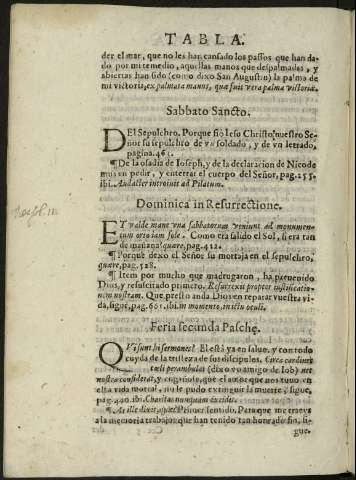 TABLA.
der el mar, que no les han cansado los passos que han da-
do por mi remedio, aquellas manos que despalmadas, y
abiertas han sido (como dixo San Augustin) la palma de
mi victoria, ex palmata manus, quæ fuit vera palma victoriæ.
Sabbato Sancto.
DEl Sepulchro. Porque fiò Iesu Christo nuestro Se-
ñor su sepulcro de vn soldado, y de vn letrado,
pagina. 461.
¶ De la osadia de Ioseph, y de la declaracion de Nicode
mus en pedir, y enterrar el cuerpo del Señor, pag. 255.
ibi. Audacter introiuit ad Pilatum.
Dominica in Resurrectione.
ET valde mane vna sabbatorum viniunt ad monumen-
tum orto iam sole. Como era salido el Sol, si era tan
de mañana? quære, pag. 412.
¶ Porque dexo el Señor su mortaja en el sepulchro,
quære, pag. 528.
¶ Item por mucho que madrugaron, ha preuenido
Dios, y resuscitado primero. Resurrexit propter iustificatio-
nem nostram. Que presto anda Dios en reparar vuestra vi-
da, sigue, pag. 601. ibi. in momento, in ictu oculi.
Feria secunda Paschę.
QVi sunt hi sermones? El està ya en saluo, y con todo
cuyda de la tristeza de sus discipulos. Circa cardines
cœli perambulat (dixo vn amigo de Iob) nec
nostra considerat, y engañose, que el amor que nos tuuo en
esta vida mortal, no le pudo extinguir la muerte; sigue,
pag. 440. ibi. Charitas nunquam excidit.
sentido. Para que me traeys
a la memoria trabajos que han tenido tan honrado fin, si-
gue.